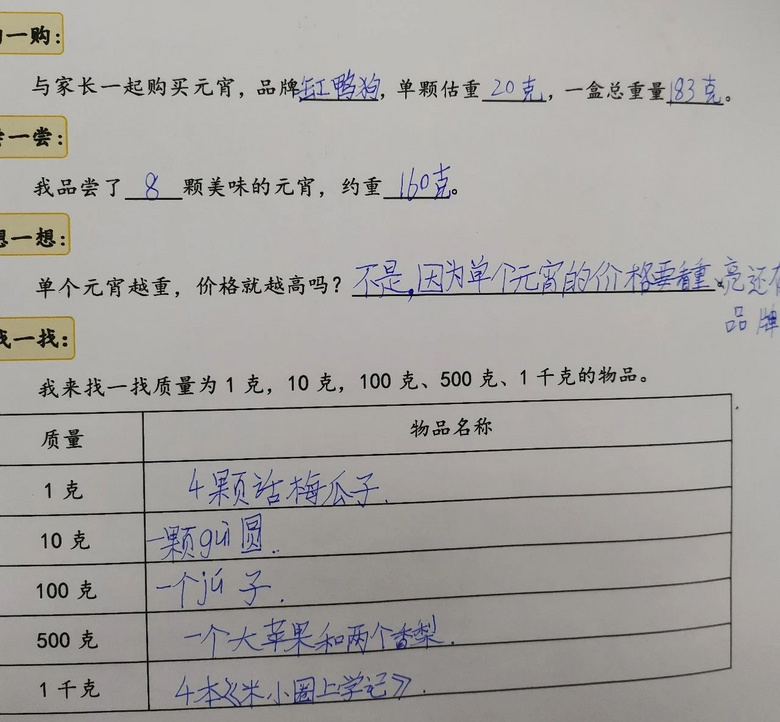 一购：
与家长一起购买元宵，品牌缸鸭狗，单颗估重20克，一盒总重量183克。
尝一尝：
我品尝了8颗美味的元宵，约重160克。
想一想：
单个元宵越重，价格就越高吗？不是，因为单个元宵的价格要看重亮还有
品牌
找一找：
我来找一找质量为1克，10克，100克、500克、1千克的物品。
质量 物品名称
1克 4颗话梅瓜子.
10克 一颗guì圆.
100克 一个jú子.
500克 一个大苹果和两个香梨.
1千克 4本《米小圈上学记》.